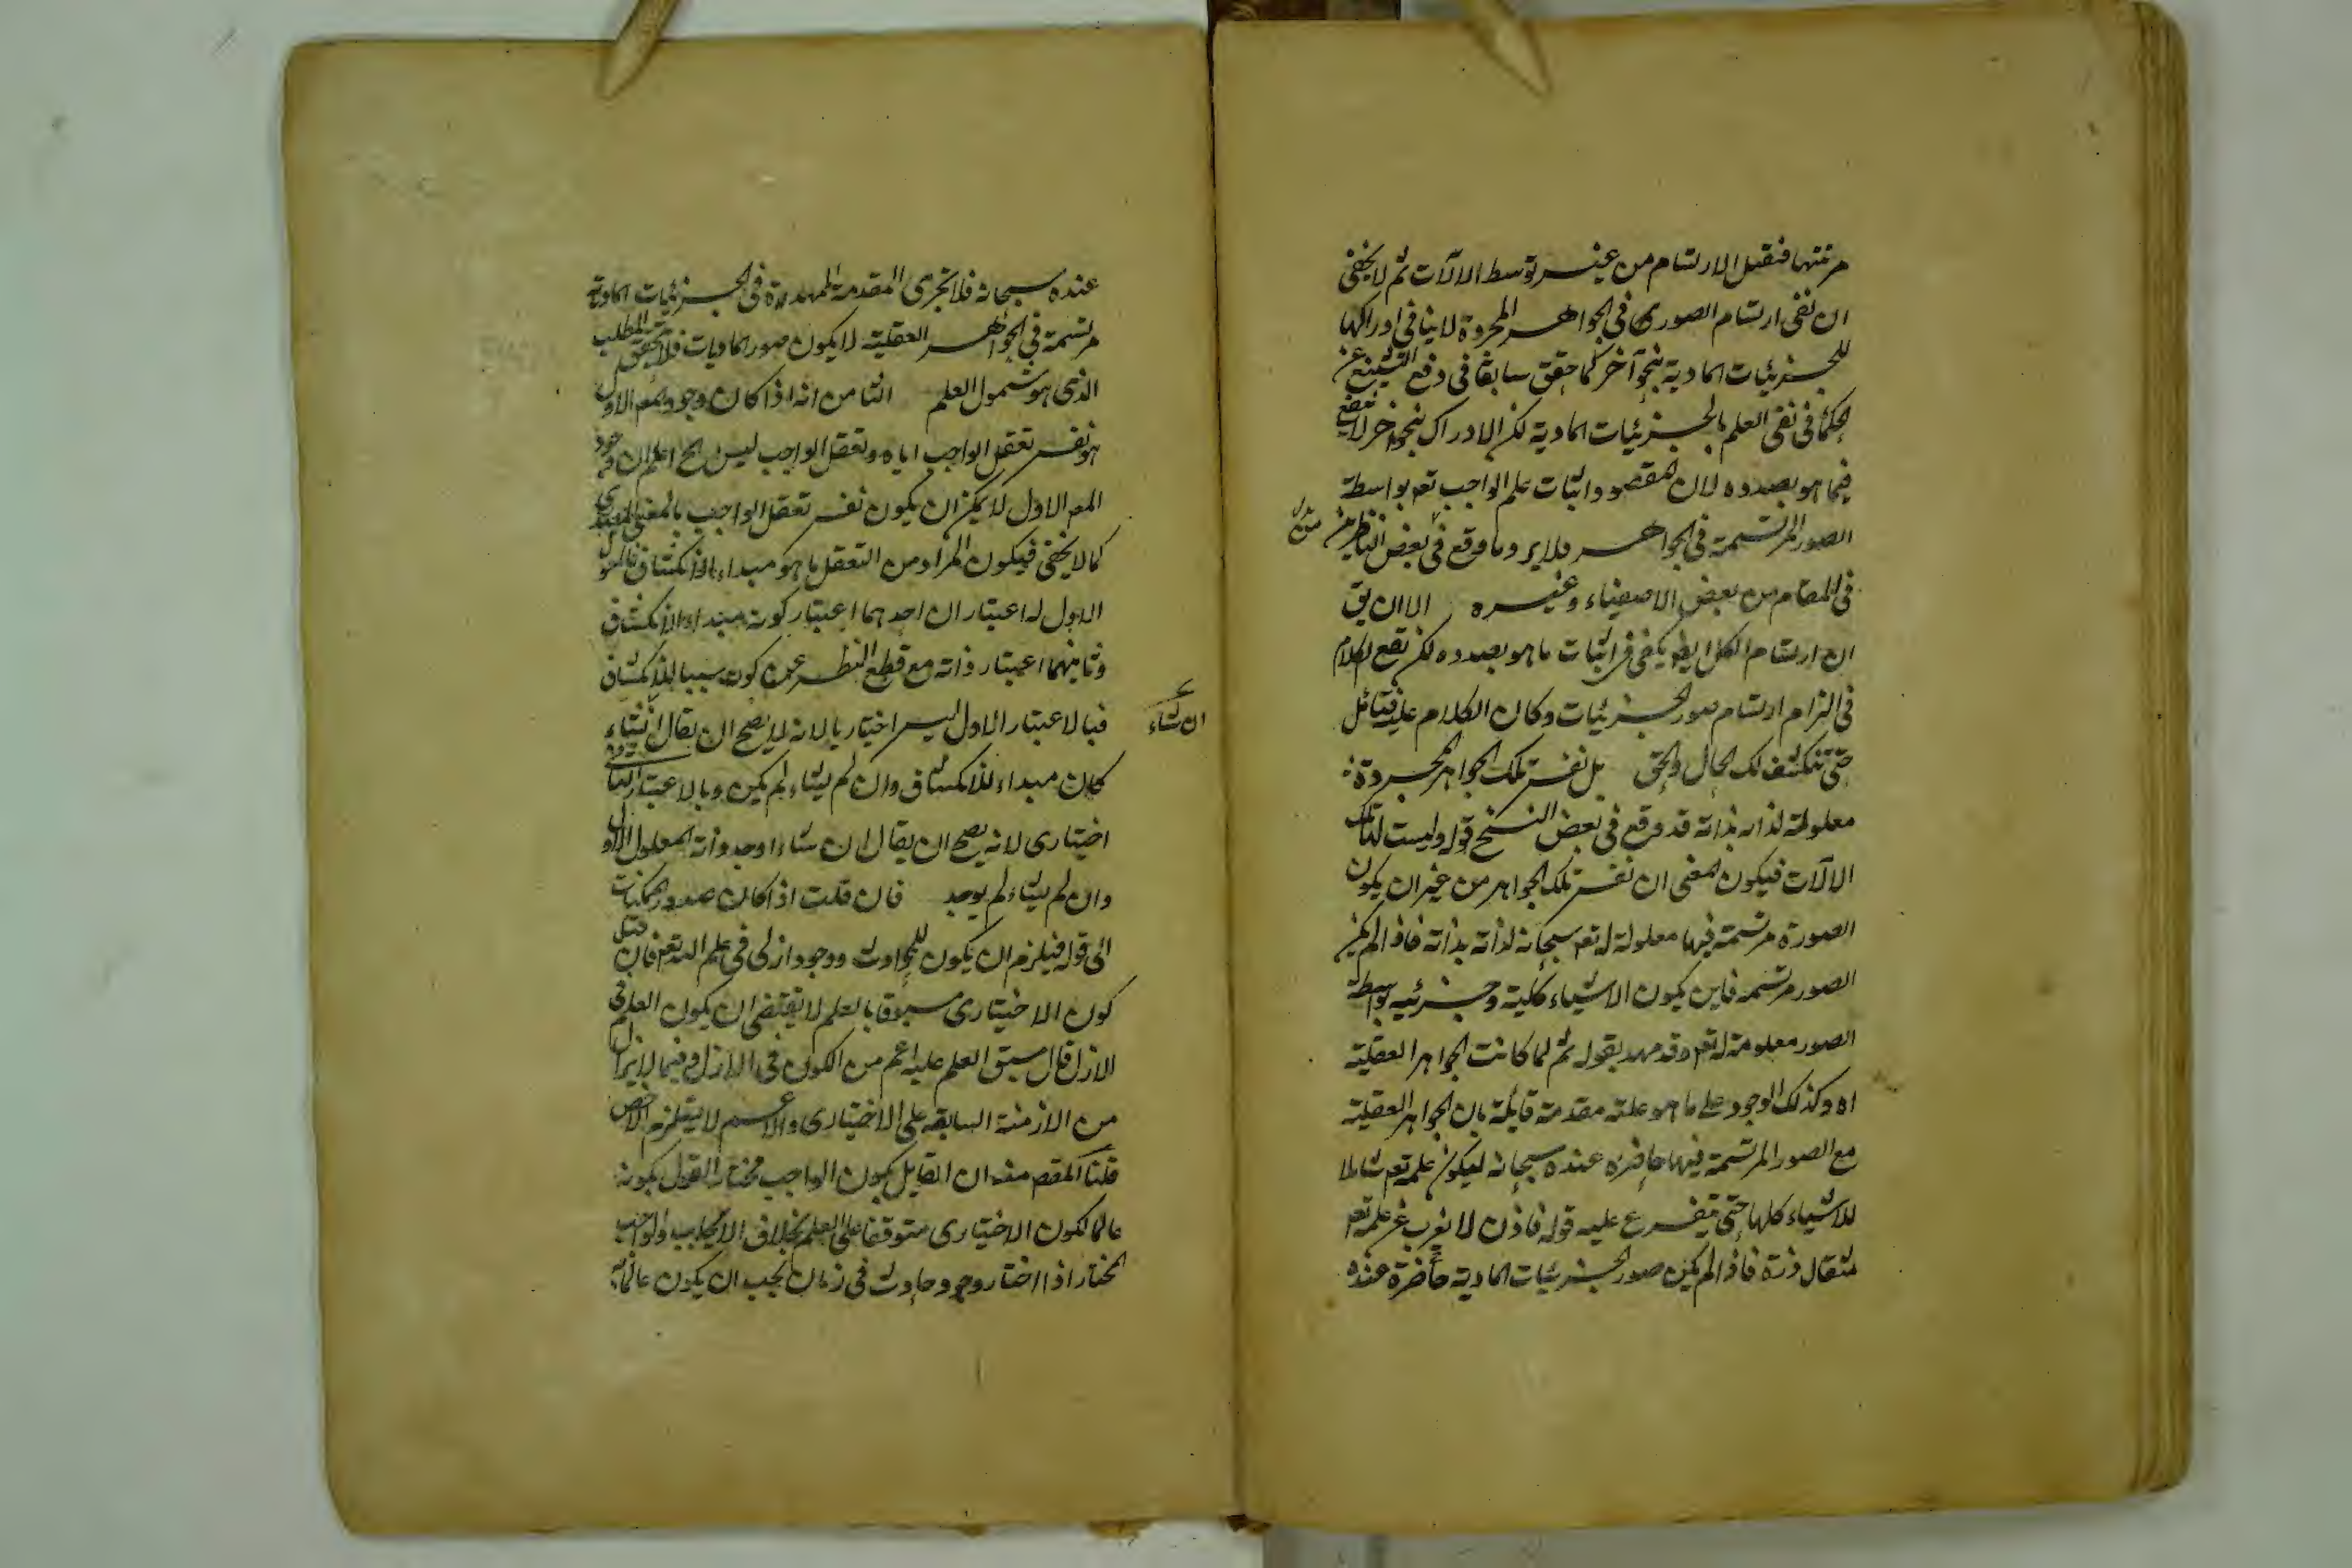 مرتبتها فتقبل الارتسام من غير توسط الالآت ثم لا يخفى
ان نفى ارتسام الصور فى الجواهر المجردة لا ينافى ادراكها
للجزئيات المادية بنحو آخر كما حقق سابقا فى دفع التشنيع عن
الحكما فى نفى العلم بالجزئيات المادية لكن الادراك بنحو آخر لا ينفع
فيما هو بصدده لان المقصود اثبات علم الواجب تعم بواسطة
الصور المرتسمة فى الجواهر فلا يرد ما وقع فى بعض الناظرين
فى المقام من بعض الاصفياء وغيره الا ان يق
ان ارتسام الكل ايضا يكفى فى اثبات ما هو بصدده لكن يقع الكلام
فى التزام ارتسام صور الجزئيات وكان الكلام عليه فتأمل
حتى تنكشف لك الحال والحق بل نفس تلك الجواهر المجردة
معلولة لذاته بذاته قد وقع فى بعض النسخ قوله وليست لتلك
الالآت فيكون المعنى ان نفس تلك الجواهر من غير ان يكون
الصورة مرتسمة فيها معلولة له تعم سبحانه لذاته بذاته فاذا لم يكن
الصور مرتسمه فاين يكون الاشياء كلية وجزئيه بواسطة
الصور معلومة له تعم وقد مهد بقوله ثم لما كانت الجواهر العقلية
اه وكذلك الوجود على ما هو علته مقدمة قايلة بان الجواهر العقلية
مع الصور المرتسمة فيها حاضرة عنده سبحانه ليكون علمه تعم شاملا
للاشياء كلها حتى يتفرع عليه قوله فاذن لا يعزب عن علمه تعم
مثقال ذرة فاذا لم يكن صور الجزئيات المادية حاضرة عنده
عنده سبحانه فلا تجرى المقدمة الممهدة فى الجزئيات المادية
مرتسمة فى الجواهر العقلية لا يكون صور الماديات فلا يتحقق المطلب
الذى هو شمول العلم الثامن انه اذا كان وجود المعم الاول
هو نفس تعقل الواجب اياه وتعقل الواجب ليس اعلم ان وجود
المعم الاول لا يمكن ان يكون نفس تعقل الواجب بالمعنى المصدرى
كما لا يخفى فيكون المراد من التعقل ما هو مبداء الانكشاف فالمعلول
الاول له اعتباران احدهما اعتبار كونه مبداء الانكشاف
وثانيهما اعتبار ذاته مع قطع النظر عن كونه سببا للانكشاف
فبالاعتبار الاول ليس اختياريا لانه لا يصح ان يقال ان شاء
ان شاء
كان مبداء للانكشاف وان لم يشاء لم يكن وبالاعتبار الثانى
اختيارى لانه يصح ان يقال ان شاء اوجد ذات المعلول الاول
وان لم يشاء لم يوجد فان قلت اذا كان صدور الممكنات
الى قوله فيلزم ان يكون للحوادث وجود ازلى فى علم الله تعم فان قيل
كون الاختيارى مسبوقا بالعلم لا يقتضى ان يكون العلم فى
الازل قال سبق العلم عليه اعم من الكون فى الازل وفيما لا يزال
من الازمنة السابقه على الاختيارى والاعم لا يستلزم الاخص
قلنا المقصم منه ان القايل بكون الواجب مختارا لقول بكونه
عالما لكون الاختيارى متوقفا على العلم بخلاف الايجاب والواجب
المختار اذا اختار وجود حادث فى زمان يجب ان يكون عالما به